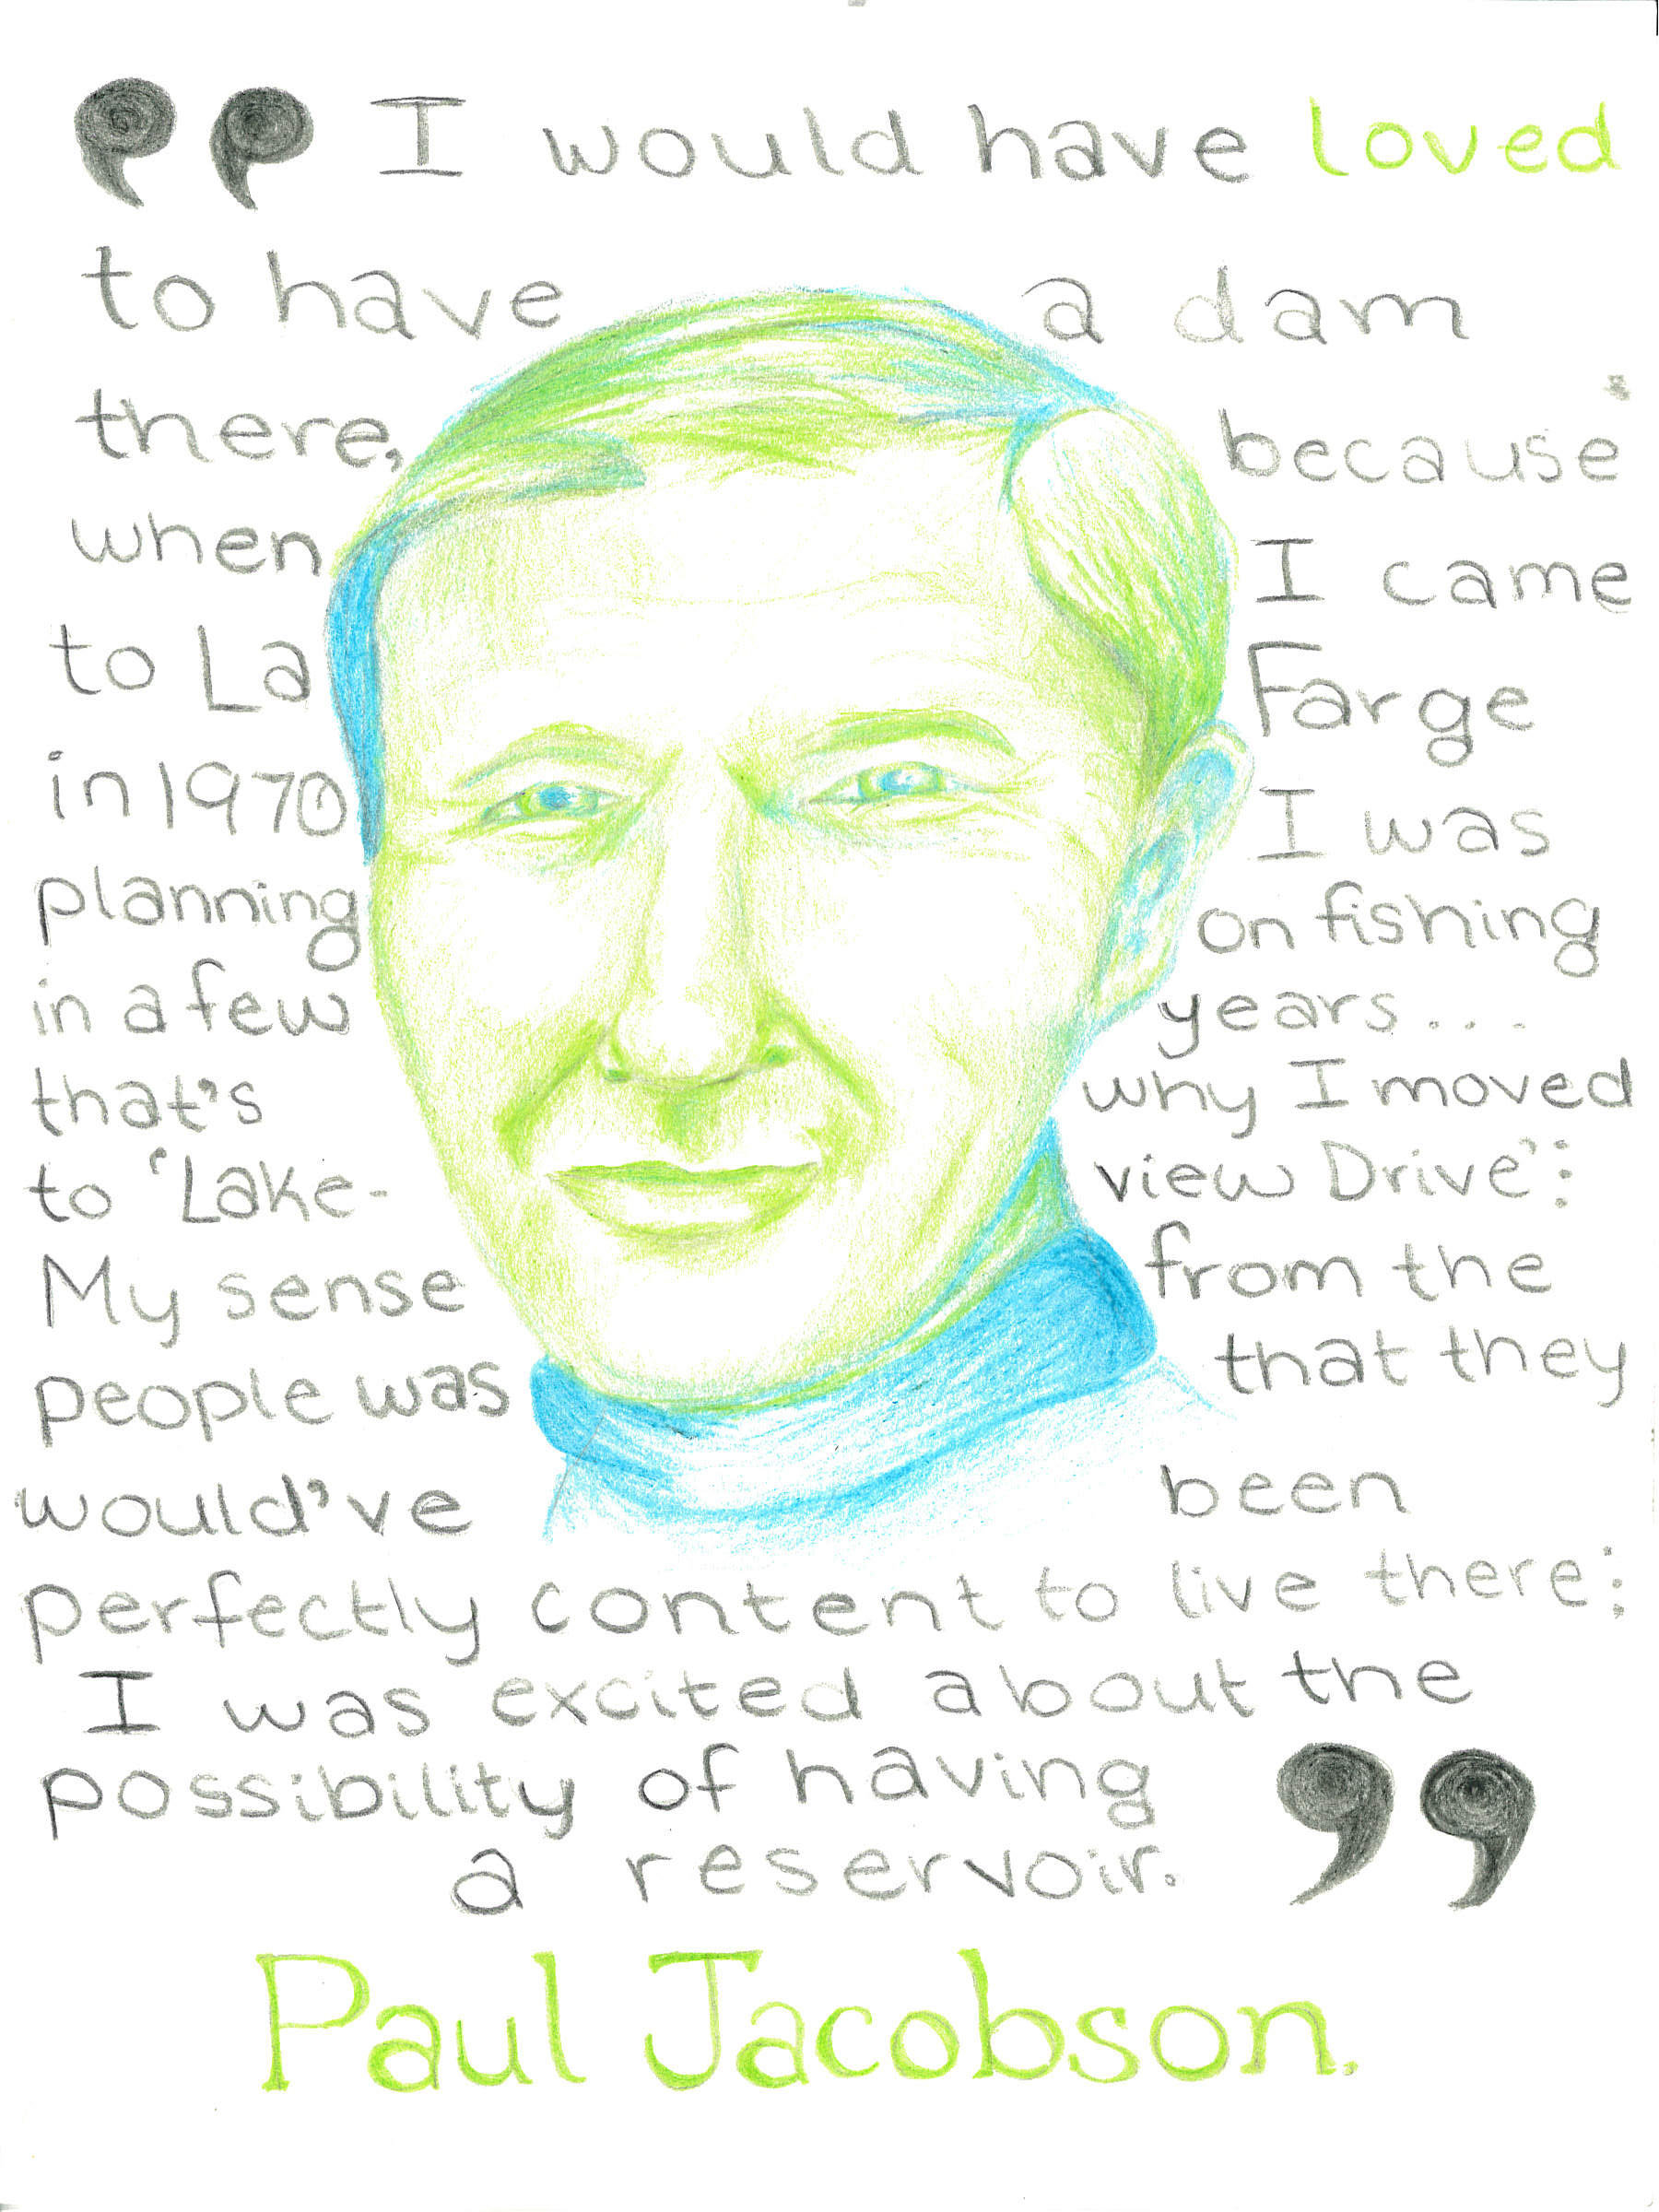 ❝ I would have loved
to have a dam
there, because
when I came
to La Farge
in 1970 I was
planning on fishing
in a few years...
that's why I moved
to 'Lake-view Drive':
My sense from the
people was that they
would've been
perfectly content to live there;
I was excited about the
possibility of having
a reservoir. ❞
Paul Jacobson.